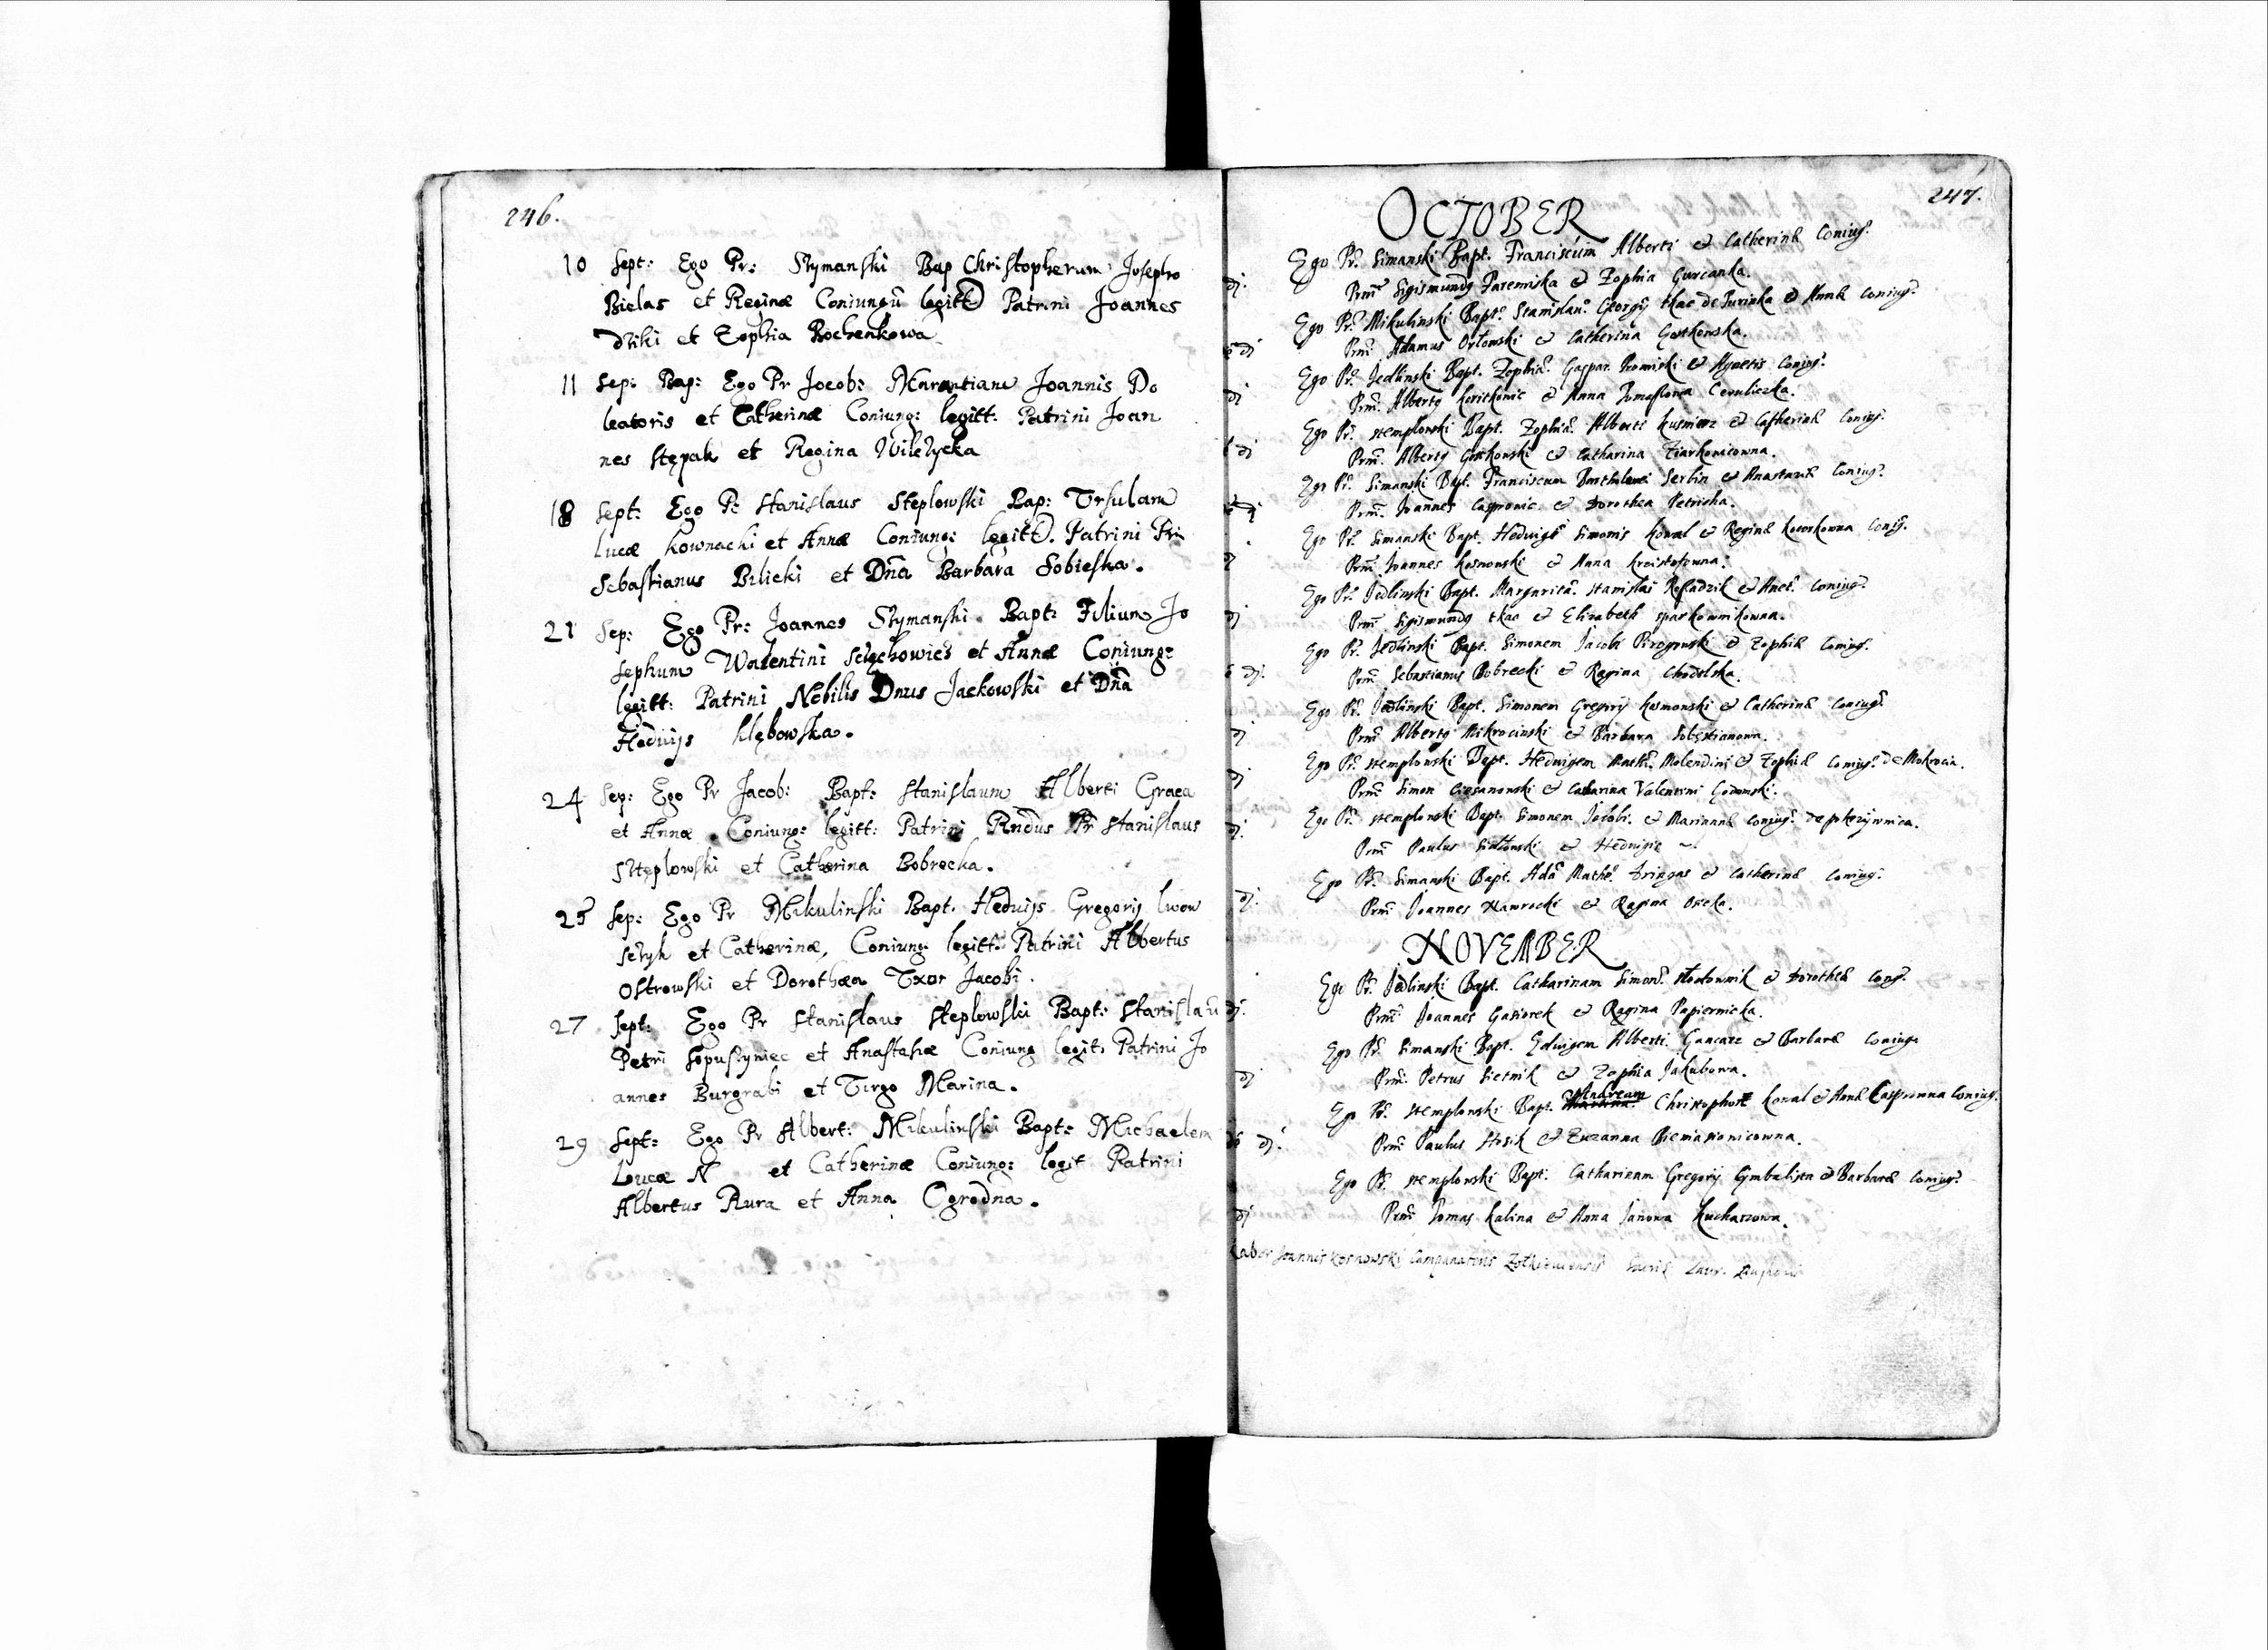 246.
10 Sept: Ego Pr: Szymanski Bap Christopherum Josepho
Bielas et Reginæ Coniungū legitt Patrini Joannes
dziki et Zophia Bochenkowa
11 Sep: Bap: Ego Pr Jocob: Marantiam Joannis Do
leatoris et Catherinæ Coniung: legitt: Patrini Joan
nes Stępak et Regina Wilczycka
18 Sept: Ego Pr Stanislaus Steplowski Bap: Vrsulam
Lucæ Kownacki et Annæ Coniung: legitt. Patrini Pr:
Sebastianus Bilicki et Dña Barbara Sobieska.
21 Sep: Ego Pr: Joannes Szymanski Bapt: Filium Jo
sephum Walentini et Annæ Coniung:
legitt: Patrini Nobilis Dnus Jackowski et Dña
Hedvijs Klębowska.
24 Sep: Ego Pr Jacob: Bapt: Stanislaum Alberti Graca
et Annæ Coniung: legitt: Patrini Rndus Pr Stanislaus
Stęplowski et Catherina Bobrecka.
25 Sep: Ego Pr Mikulinski Bapt. Hedvijs Gregorij Iwow
sczyk et Catherinæ, Coniung: legitt: Patrini Albertus
Ostrowski et Dorothæa Vxor Jacobi.
27 Sept: Ego Pr Stanislaus Steplowski Bapt: Stanislau
Petri Sopuszyniec et Anastasiæ Coniung legit: Patrini Jo
annes Burgrabi et Virgo Marina.
29 Sept: Ego Pr Albert: Mikulinski Bapt: Michaelem
Lucæ N et Catherinæ Coniung: legit Patrini
Albertus Rura et Anna Ogrodna.
247.
OCTOBER
Ego Pr. Simanski Bapt. Franciscum Alberti & Catherinæ Coniug.
Prni Sigismundg Jaremiska & Zophia Gurcanka.
Ego Pr. Mikulinski Bapt. Stanislau. Georgij tkac de Turinka & Annæ Coniug.
Prni Adamus Orlowski & Catherina Gostkowska.
Ego Pr. Jedlinski Bapt. Zophia. Gaspar. & Agnetis Coniug.
Prni Albertg & Anna Tomaslowa
Ego Pr. Stemplowski Bapt. Zophia. Alberti Kusnierz & Catherinæ Coniug.
Prni. Albertg Gostkowski & Catharina
Ego Pr. Simanski Bapt. Franciscum Bartholomei Serbin & Anastasiæ Coniug.
Prni Joannes & Dorothea Petricha.
Ego Pr. Simanski Bapt. Hedwige Simonis Kowal & Reginæ Coniug.
Prni Joannes Kosnowski & Anna Kristofowna.
Ego Pr. Jedlinski Bapt. Margarita. Stanislai & Coniug.
Prni Sigismundg tkac & Elizabeth
Ego Pr. Jedlinski Bapt. Simonem Jacobi & Zophiæ Coniug.
Prni Sebastianus Bobrecki & Regina Chodolska.
Ego Pr. Jedlinski Bapt. Simonem Gregorij Kosmowski & Catherinæ Coniug.
Prni Albertg Mikrocinski & Barbara Sobestianowa.
Ego Pr. Stemplowski Bapt. Hedwigem Math. Molendini & Zophiæ Coniug. de Mokrocin.
Prni Simon & Catharina Valentini
Ego Pr. Stemplowski Bapt. Simonem Jacobi. & Mariannæ Coniug.
Prni Paulus & Hedwigis ~.
Ego Pr. Simanski Bapt. Ada Mathe. & Catherinæ Coniug.
Prni Joannes Nawrocki & Regina
NOVEMBER
Ego Pr. Jedlinski Bapt. Catharinam Simon. & Dorotheæ Coniug.
Prni. Joannes Gasiorek & Regina Papiernicka.
Ego Pr. Simanski Bapt. Edwigem Alberti. Gancarz & Barbaræ Coniug.
Prni. Petrus Sietnik & Zophia Jakubowa.
Ego Pr. Stemplowski Bapt. Andream Christophori Kowal & Annæ Coniug.
Prni Paulus & Zuzanna
Ego Pr. Stemplowski Bapt. Catharinam Gregorij Cymbalista & Barbaræ Coniug.
Prni Tomas Kalina & Anna Janowa Kucharzowa.
Labor Joannis Kosnowski Campanatoris